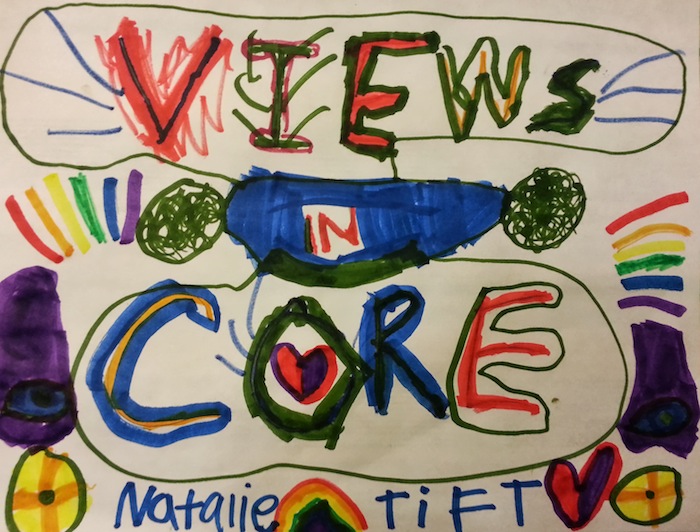 VIEWS
IN
CORE
Natalie TiFT